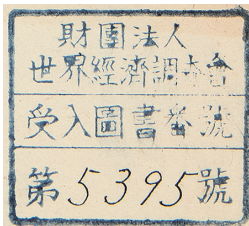 財團法人
世界經濟調查會
受入圖書番號
第5395號